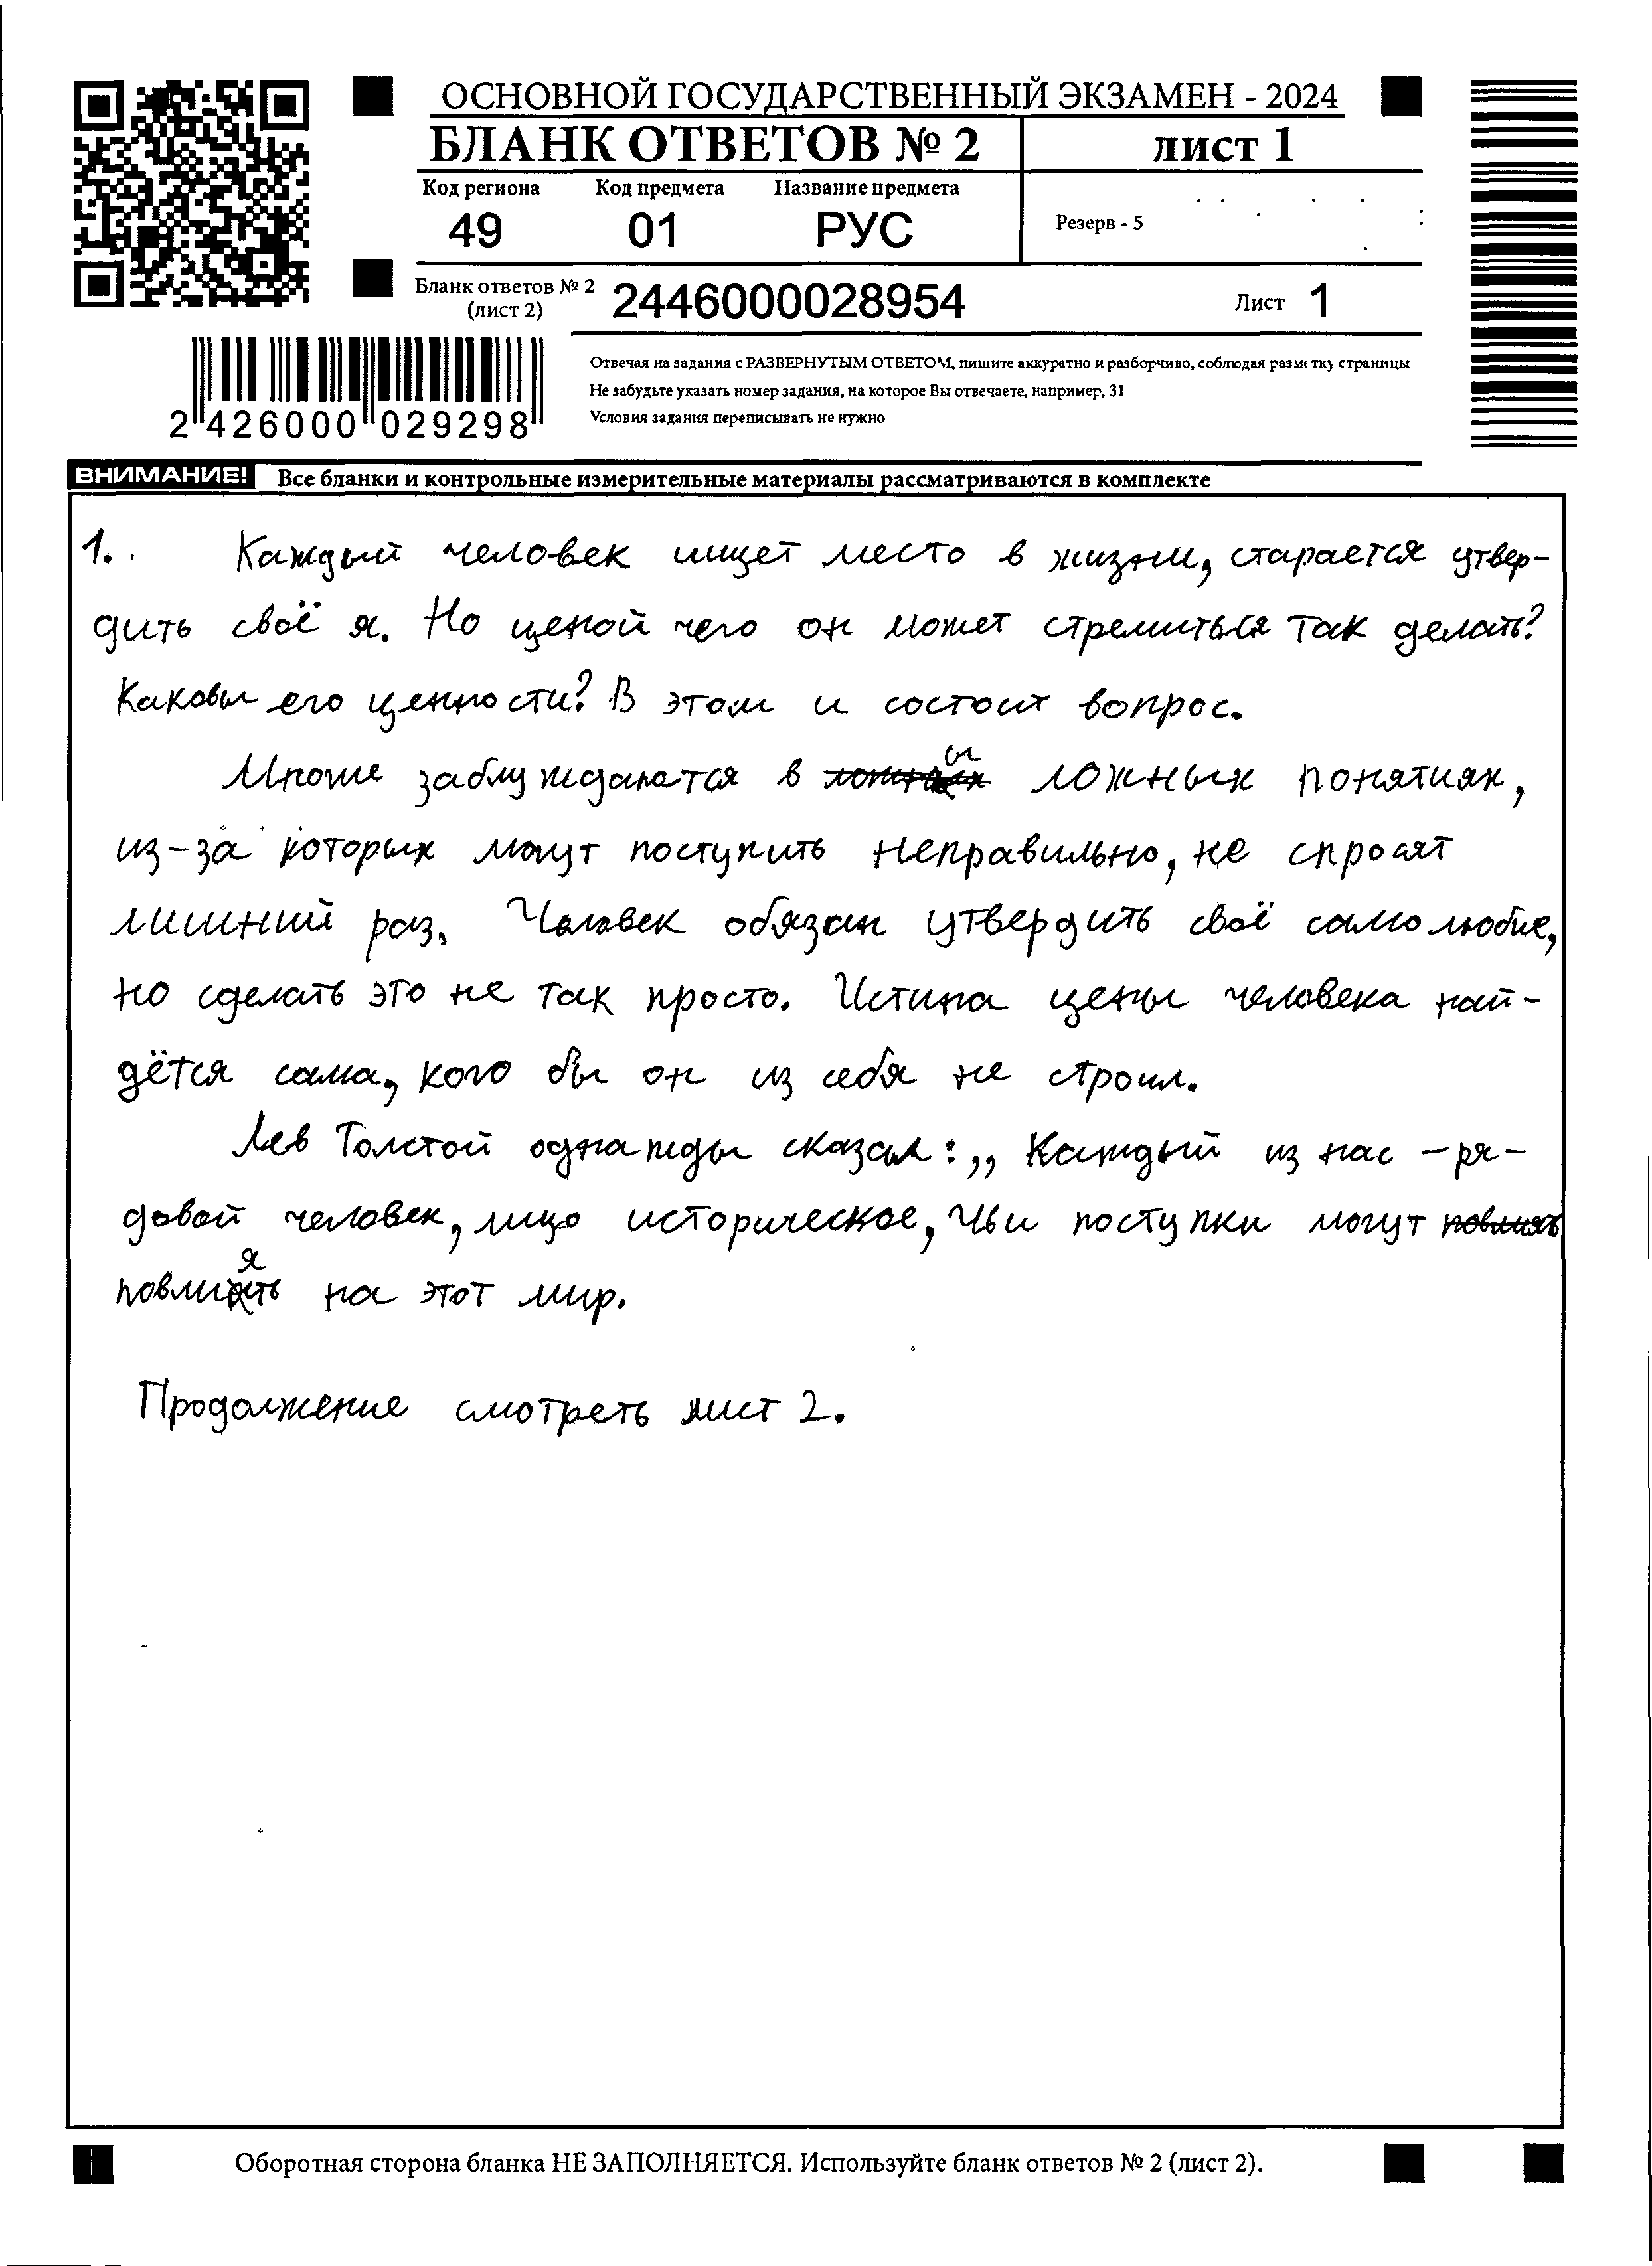 ОСНОВНОЙ ГОСУДАРСТВЕННЫЙ ЭКЗАМЕН - 2024
БЛАНК ОТВЕТОВ № 2
лист 1
Код региона Код предмета Название предмета
49 01 РУС
Резерв - 5
Бланк ответов № 2
(лист 2)
2446000028954
Лист 1
Отвечая на задания с РАЗВЕРНУТЫМ ОТВЕТОМ, пишите аккуратно и разборчиво, соблюдая разметку страницы
Не забудьте указать номер задания, на которое Вы отвечаете, например, 31
Условия задания переписывать не нужно
2 426000 029298
ВНИМАНИЕ! Все бланки и контрольные измерительные материалы рассматриваются в комплекте
1. Каждый человек ищет место в жизни, старается утвер-
дить своё я. Но ценой чего он может стремиться так делать?
Каковы его ценности? В этом и состоит вопрос.
Многие заблуждаются в ложных понятиях,
из-за которых могут поступить неправильно, не спросят
лишний раз. Человек обязан утвердить своё самолюбие,
но сделать это не так просто. Истина цены человека най-
дётся сама, кого бы он из себя не строил.
Лев Толстой однажды сказал: „Каждый из нас - ря-
довой человек, лицо историческое, чьи поступки могут
повлиять на этот мир.
Продолжение смотреть лист 2.
Оборотная сторона бланка НЕ ЗАПОЛНЯЕТСЯ. Используйте бланк ответов № 2 (лист 2).